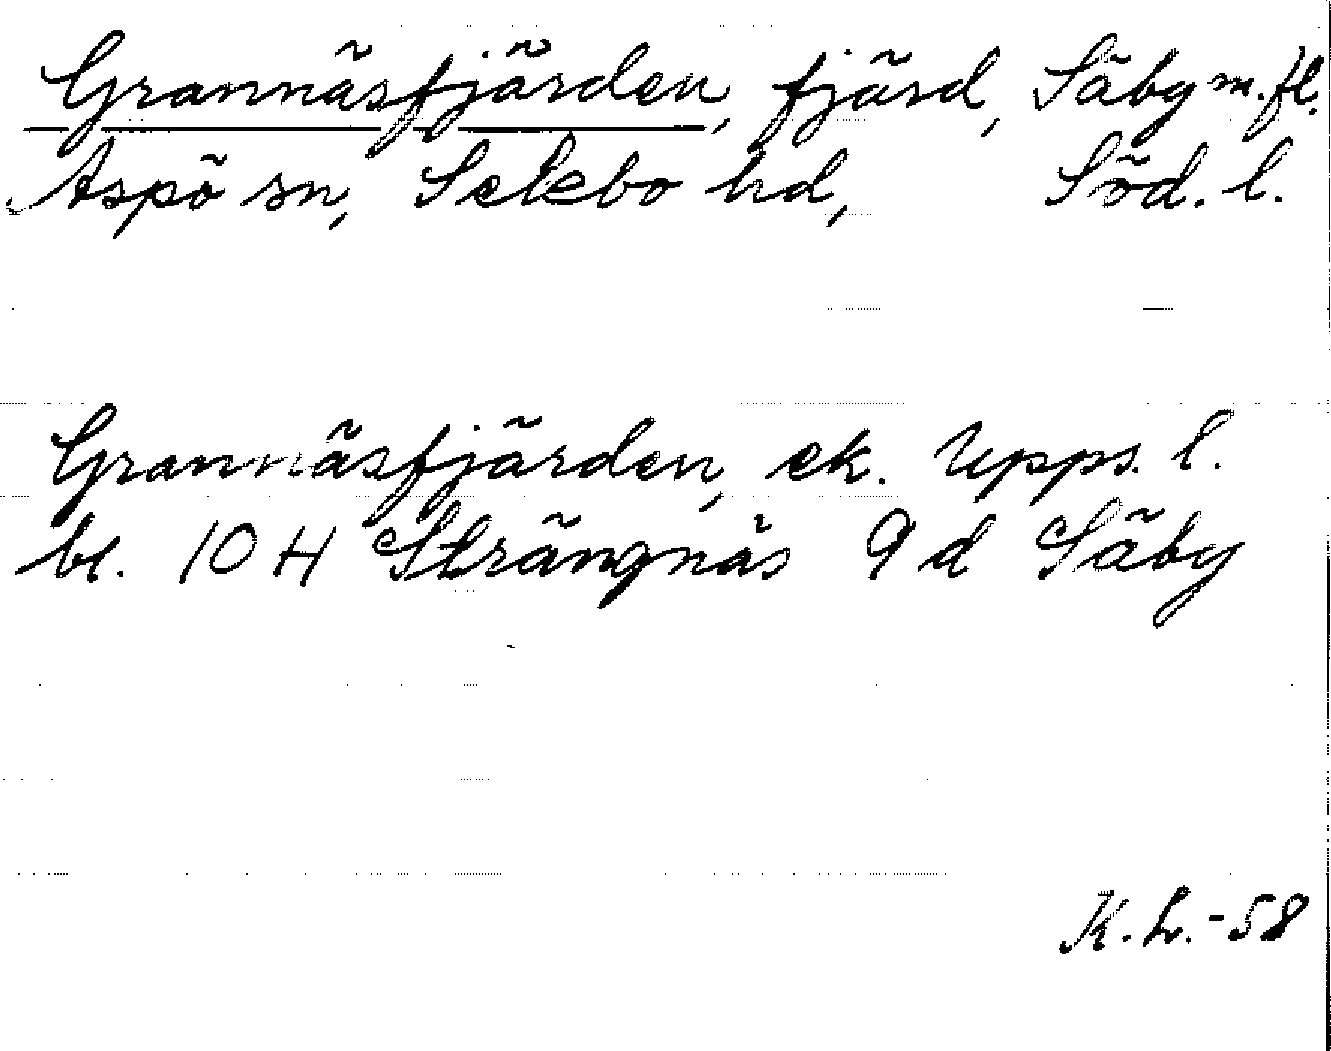 Grannäsfjärden, fjärd, Säby m. fl.
Aspö sn, Selebo hd, Söd. l.
Grannäsfjärden, ek. Upps. l.
bl. 10 H Strängnäs 9 d Säby
K. L. -58